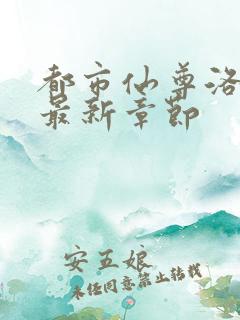 都市仙尊洛
最新章节
安五娘
未经同意禁止转载